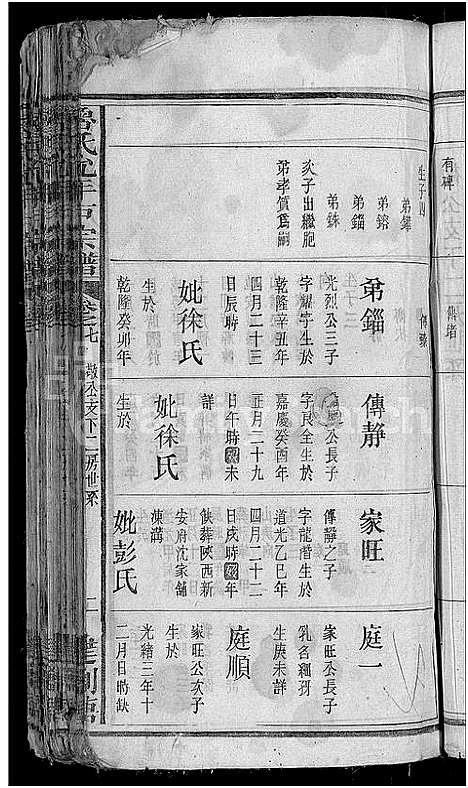 有碑
傳堵
生子四
弟鎔
弟錙
弟銖
次子出繼胞
弟孝價爲嗣
弟錙
光烈公三子
字耀字生於
乾隆辛丑年
四月二十三
日辰時
妣徐氏
生於
乾隆癸卯年
傳靜
公長子
字民全生於
嘉慶癸酉年
正月二十九
日午時歿未
詳
妣徐氏
生於
家旺
傳靜之子
字龍潛生於
道光乙巳年
四月二十二
日戌時歿年
佚葬陝西新
安府沈家舖
凍溝
妣彭氏
庭一
家旺公長子
乳名
生庚未詳
庭順
家旺公次子
生於
光緒三年十
二月日時缺
宗譜
卷之七
敬公支下二房世系
二